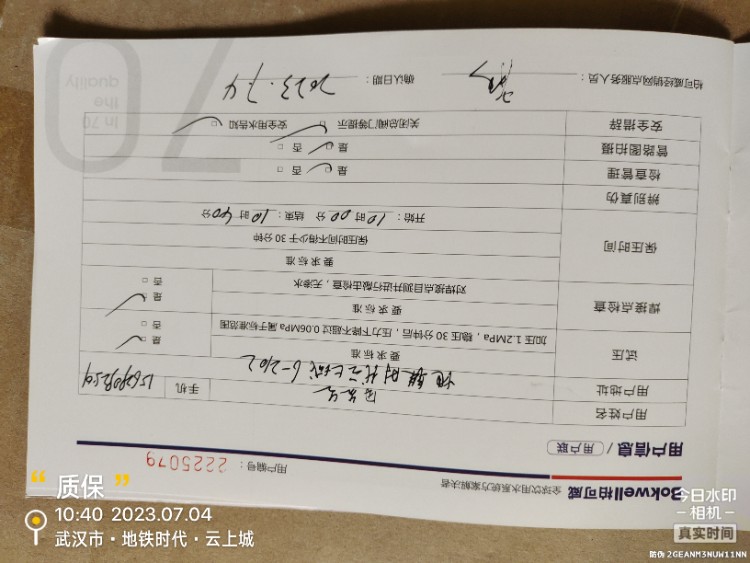 Bokwell柏可威 全球饮用水系统方案解决者
用户信息 / 用户联 用户编号：2225079
用户姓名
手机
用户地址 地铁时代云上城 6-2102
试压 要求标准 是
加压1.2MPa，稳压30分钟后，压力下降不超过0.06MPa属于标准范围 否
焊接点检查 要求标准 是
对焊接点目测并进行敲击检查，无渗水 否
保压时间 要求标准
保压时间不得少于30分钟
开始：10时00分 结束：10时40分
辨别真伪
检查管理 是 否
管路图拍摄 是 否
安全措辞 关闭总阀门等提示 安全用水告知
柏可威经销网点服务人员： 确认日期：2023.7.4
70
In 70
the
quality
质保
10:40 2023.07.04
武汉市·地铁时代·云上城
今日水印
相机
真实时间
防伪 2GEANM3NUW11NN